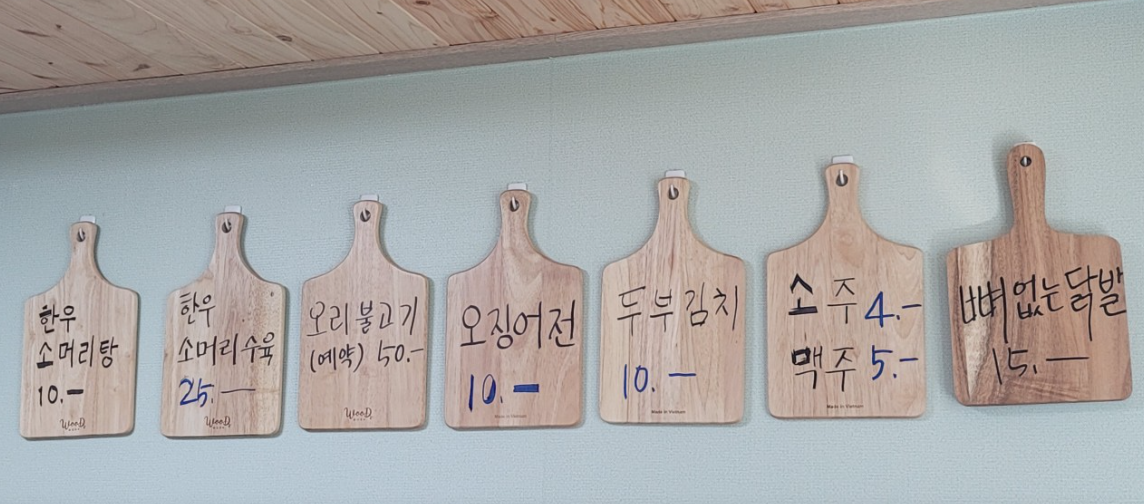 한우
소머리탕
10.-
WooD.
한우
소머리수육
25.-
WooD.
오리불고기
(예약) 50.-
WooD.
오징어전
10.-
Made in Vietnam
두부김치
10.-
Made in Vietnam
소주 4.-
맥주 5.-
Made in Vietnam
뼈없는닭발
15.-